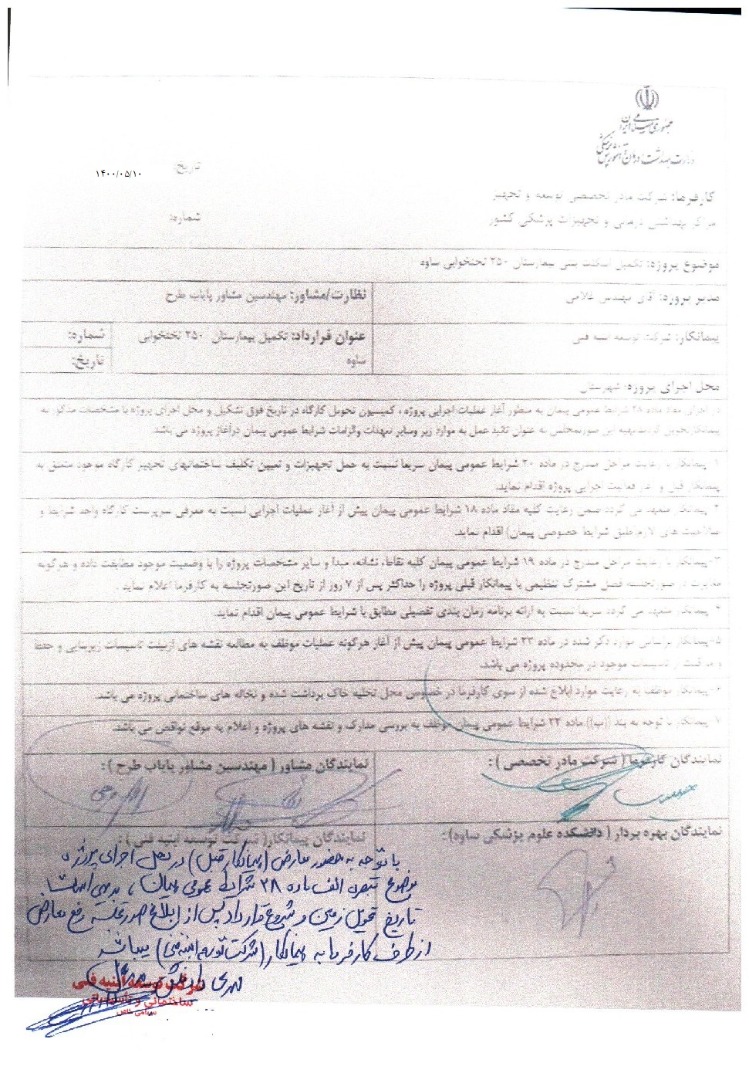 جمهوری اسلامی ایران
وزارت بهداشت، درمان و آموزش پزشکی
تاریخ:
۱۴۰۰/۰۵/۱۰
کارفرما: شرکت مادر تخصصی توسعه و تجهیز
مراکز بهداشتی درمانی و تجهیزات پزشکی کشور
شماره:
موضوع پروژه: تکمیل اسکلت بتنی بیمارستان ۲۵۰ تختخوابی ساوه
مدیر پروژه: آقای مهندس غلامی
نظارت/مشاور: مهندسین مشاور پایاب طرح
پیمانکار: شرکت توسعه ابنیه فنی
عنوان قرارداد: تکمیل بیمارستان ۲۵۰ تختخوابی
ساوه
شماره:
تاریخ:
محل اجرای پروژه: شهرستان
در اجرای مفاد ماده ۲۸ شرایط عمومی پیمان به منظور آغاز عملیات اجرایی پروژه ، کمیسیون تحویل کارگاه در تاریخ فوق تشکیل و محل اجرای پروژه با مشخصات مذکور به
پیمانکار تحویل گردید. تهیه این صورتمجلس به عنوان تائید عمل به موارد زیر وسایر تعهدات والزامات شرایط عمومی پیمان درآغاز پروژه می باشد.
۱- پیمانکار با رعایت مراحل مندرج در ماده ۲۰ شرایط عمومی پیمان سریعا نسبت به حمل تجهیزات و تعیین تکلیف ساختمانهای تجهیز کارگاه موجود متعلق به
پیمانکار قبل و آغاز فعالیت اجرایی پروژه اقدام نماید.
۲- پیمانکار متعهد می گردد ضمن رعایت کلیه مفاد ماده ۱۸ شرایط عمومی پیمان پیش از آغاز عملیات اجرایی نسبت به معرفی سرپرست کارگاه واجد شرایط و
صلاحیت های لازم طبق شرایط خصوصی پیمان) اقدام نماید.
۳- پیمانکار با رعایت مراحل مندرج در ماده ۱۹ شرایط عمومی پیمان کلیه نقاط، نشانه، مبدا و سایر مشخصات پروژه را با وضعیت موجود مطابقت داده و هرگونه
مغایرت در صورتجلسه فصل مشترک تنظیمی با پیمانکار قبلی پروژه را حداکثر پس از ۷ روز از تاریخ این صورتجلسه به کارفرما اعلام نماید .
۴- پیمانکار متعهد می گردد سریعا نسبت به ارائه برنامه زمان بندی تفصیلی مطابق با شرایط عمومی پیمان اقدام نماید.
۵- پیمانکار براساس موارد ذکر شده در ماده ۲۳ شرایط عمومی پیمان پیش از آغاز هرگونه عملیات موظف به مطالعه نقشه های ازبیلت تاسیسات زیربنایی و حفظ
و مراقبت از تاسیسات موجود در محدوده پروژه می باشد.
۶- پیمانکار موظف به رعایت موارد ابلاغ شده از سوی کارفرما در خصوص محل تخلیه خاک برداشت شده و نخاله های ساختمانی پروژه می باشد.
۷- پیمانکار با توجه به بند (ب)) ماده ۲۲ شرایط عمومی پیمان موظف به بررسی مدارک و نقشه های پروژه و اعلام به موقع نواقص می باشد.
نمایندگان کارفرما ( شرکت مادر تخصصی ) :
نمایندگان مشاور ( مهندسین مشاور پایاب طرح ) :
نمایندگان بهره بردار ( دانشکده علوم پزشکی ساوه):
نمایندگان پیمانکار( شرکت توسعه ابنیه فنی ) :
با توجه به حضور معارض (پیمانکار قبل) در محل اجرای پروژه
موضوع تبصره الف ماده ۲۸ شرایط عمومی پیمان ، بدیهی است
تاریخ تحویل زمین و شروع قرارداد پس از ابلاغ صورتجلسه رفع معارض
از طرف کارفرما به پیمانکار (شرکت توسعه ابنیه فنی) میباشد
شرکت توسعه ابنیه فنی
ساختمانی و تاسیساتی
سهامی خاص